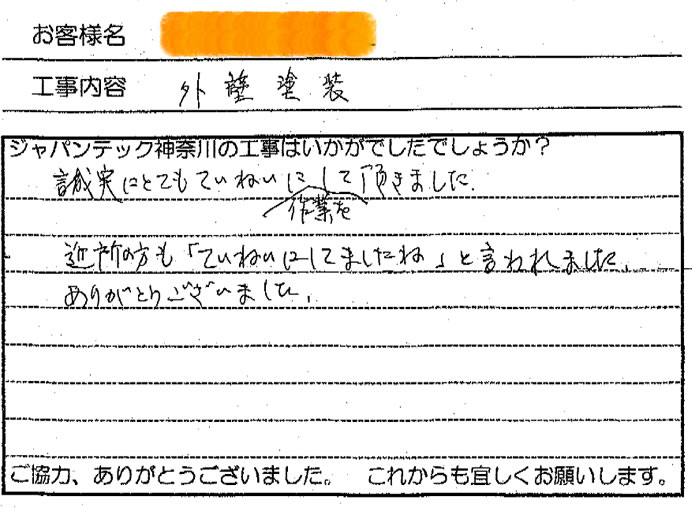 お客様名
工事内容 外壁塗装
ジャパンテック神奈川の工事はいかがでしたでしょうか?
誠実にとてもていねいに作業をして頂きました.
近所の方も「ていねいにしてましたね」と言われました.
ありがとうございました.
ご協力、ありがとうございました。 これからも宜しくお願いします。